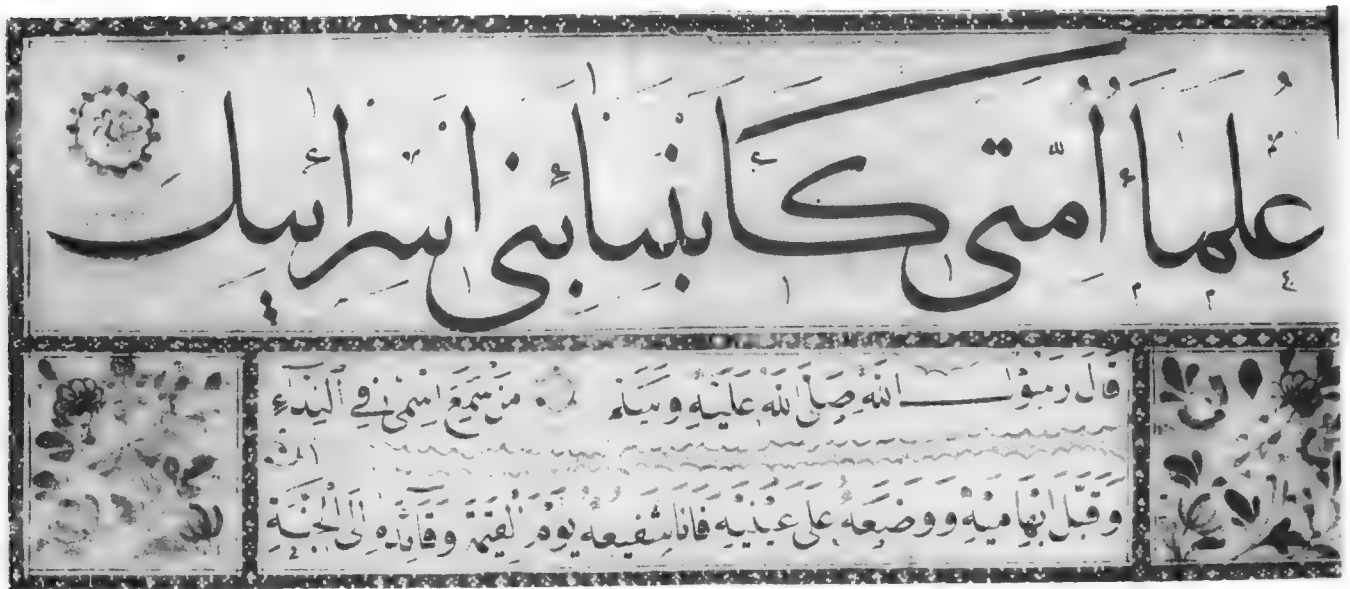 عُلَمَاءُ أُمَّتِي كَأَنْبِيَاءِ بَنِي إِسْرَائِيلَ
قَالَ رَسُولُ اللهِ صَلَّى اللهُ عَلَيْهِ وَسَلَّمَ مَنْ سَمِعَ اسْمِي فِي النِّدَاءِ
وَقَبَّلَ إِبْهَامَيْهِ وَوَضَعَهُ عَلَى عَيْنَيْهِ فَأَنَا شَفِيعُهُ يَوْمَ الْقِيٰمَةِ وَقَائِدُهُ إِلَى الْجَنَّةِ